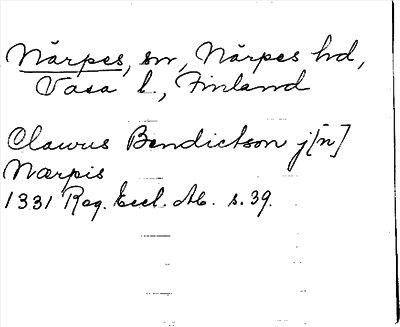 Närpes, sn, Närpes hd,
Vasa l., Finland
Clawus Bendictson j[n]
Nærpis
1331 Reg. Eccl. Ab. s. 39.